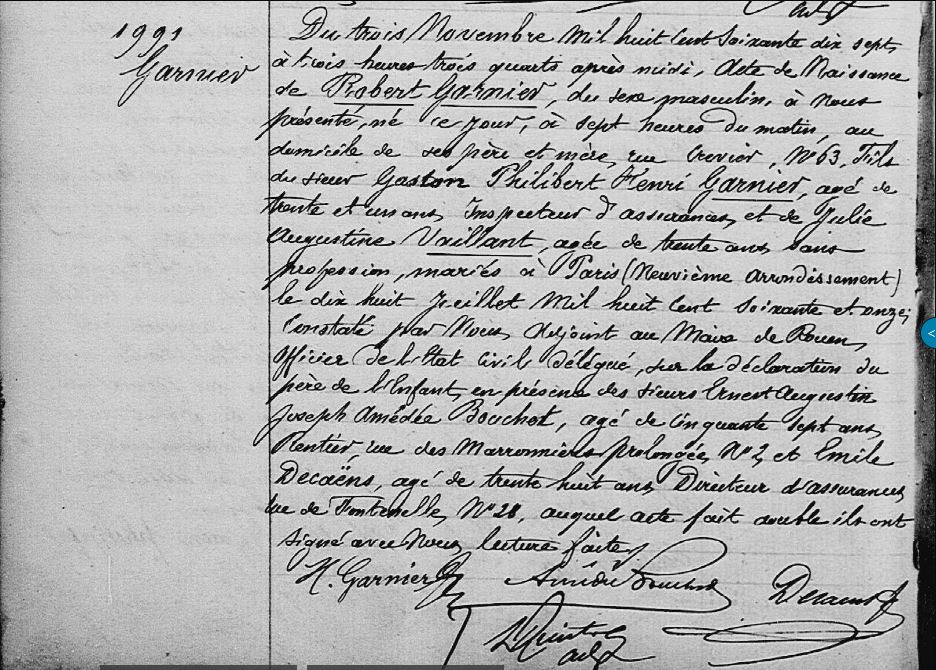 adjt
1991
Garnier
Du trois Novembre Mil huit Cent Soixante dix sept,
à trois heures trois quarts après midi, Acte de Naissance
de Robert Garnier, du sexe masculin, à nous
présenté, né ce jour, à sept heures du matin, au
domicile de ses père et mère, rue Crevier, N° 63, Fils
du sieur Gaston Philibert Henri Garnier, agé de
trente et un ans, Inspecteur d'assurances, et de Julie
Augustine Vaillant, agée de trente ans, sans
profession, mariés à Paris (Neuvième Arrondissement)
le dix huit Juillet Mil huit Cent Soixante et onze;
Constaté par Nous, Adjoint au Maire de Rouen,
Officier de l'Etat Civil délégué, sur la déclaration du
père de l'Enfant, en présence des sieurs Ernest Augustin
Joseph Amédée Bouchot, agé de Cinquante Sept ans,
Rentier, rue des Marronniers prolongée, N° 2, et Emile
Decaëns, agé de trente huit ans, Directeur d'assurances,
rue de Fontenelle, N° 28, auquel acte fait double ils ont
signé avec Nous, lecture faite,
H. Garnier Amédée Bouchot Decaens
adjt